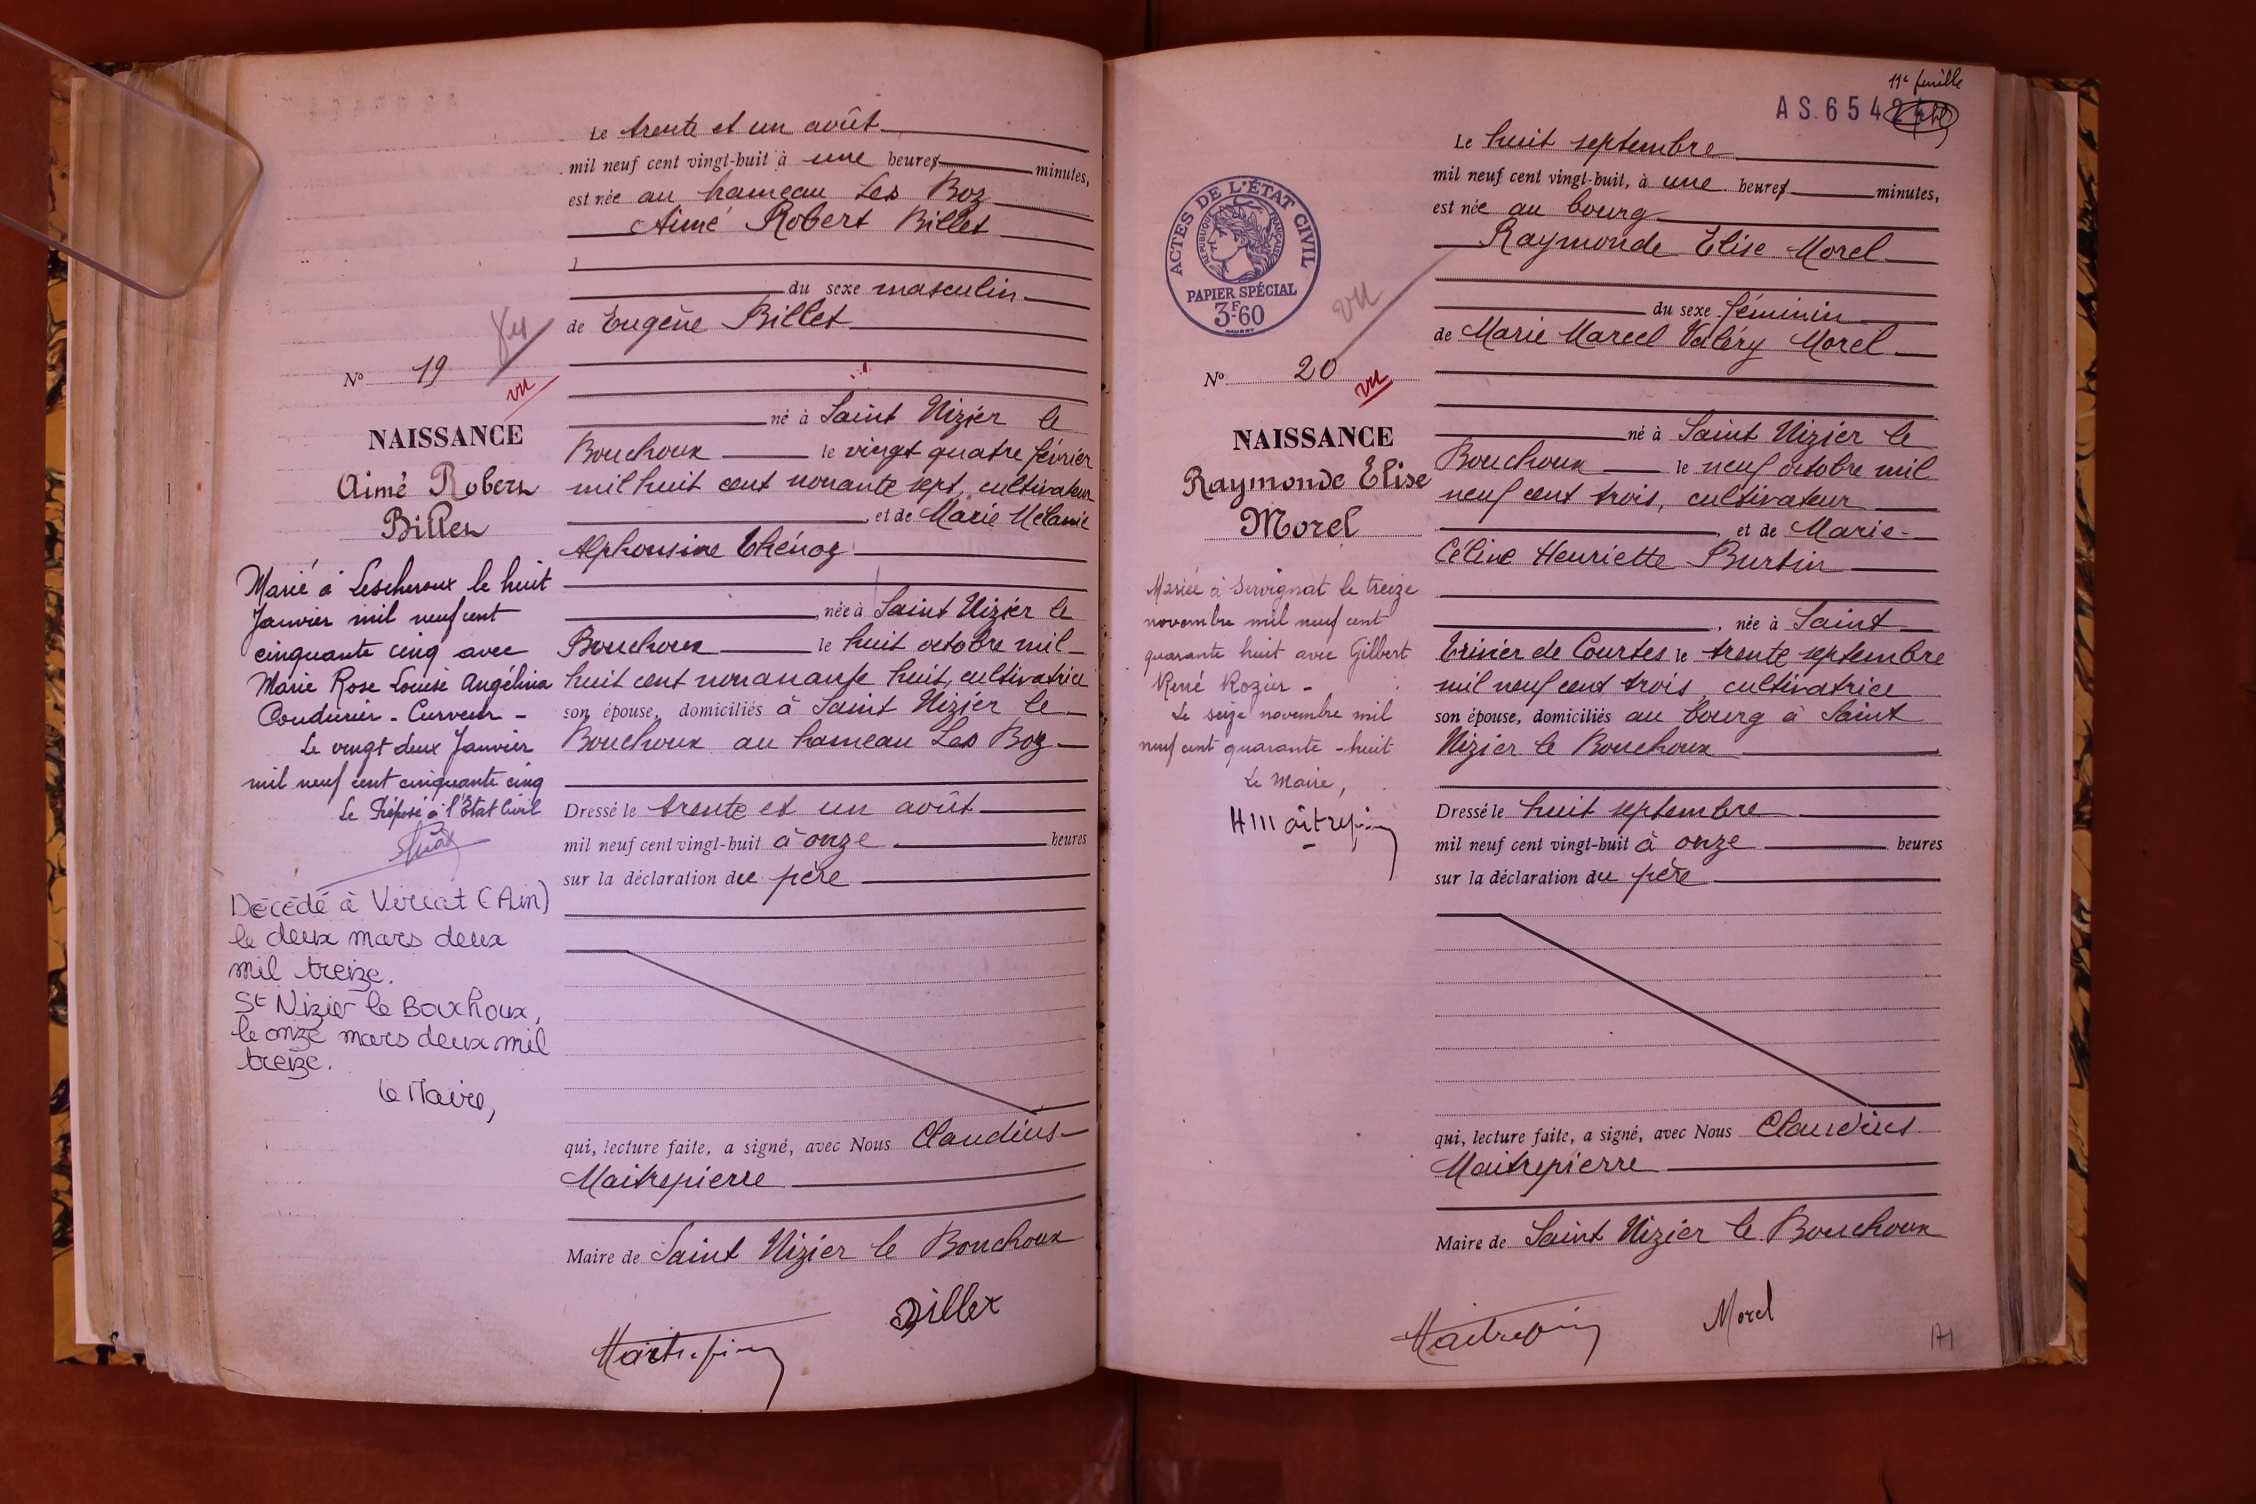 Le trente et un août
mil neuf cent vingt-huit à une heures minutes,
est née au hameau Les Boz
Aimé Robert Billet
du sexe masculin
de Eugène Billet
né à Saint Nizier le
Bouchoux le vingt quatre février
mil huit cent nonante sept, cultivateur
, et de Marie Mélanie
Alphonsine Thénoz
, née à Saint Nizier le
Bouchoux le huit octobre mil
huit cent nonanante huit, cultivatrice
son épouse, domiciliés à Saint Nizier le
Bouchoux au hameau Les Boz
Dressé le trente et un août
mil neuf cent vingt-huit à onze heures
sur la déclaration du père
qui, lecture faite, a signé, avec Nous Claudius
Maitrepierre
Maire de Saint Nizier le Bouchoux
Billet
Maitrepierre
vu
No 19
vu
NAISSANCE
Aimé Robert
Billet
Marié à Lescheroux le huit
Janvier mil neuf cent
cinquante cinq avec
Marie Rose Louise Angélina
Coudurier-Curveur -
Le vingt deux Janvier
mil neuf cent cinquante cinq
Le Préposé à l'Etat Civil
Décédé à Viriat (Ain)
le deux mars deux
mil treize.
St Nizier le Bouchoux,
le onze mars deux mil
treize.
Le Maire,
11e feuille
AS.654
Le huit septembre
mil neuf cent vingt-huit, à une heures minutes,
est née au bourg
Raymonde Elise Morel
du sexe féminin
de Marie Marcel Valéry Morel
né à Saint Nizier le
Bouchoux le neuf octobre mil
neuf cent trois, cultivateur
, et de Marie-
Céline Henriette Burtin
, née à Saint
Trivier de Courtes le trente septembre
mil neuf cent trois, cultivatrice
son épouse, domiciliés au bourg à Saint
Nizier le Bouchoux
Dressé le huit septembre
mil neuf cent vingt-huit à onze heures
sur la déclaration du père
qui, lecture faite, a signé, avec Nous Claudius
Maitrepierre
Maire de Saint Nizier le Bouchoux
Morel
Maitrepierre
171
ACTES DE L'ÉTAT CIVIL
RÉPUBLIQUE FRANÇAISE
PAPIER SPÉCIAL
3F60
vu
No 20
vu
NAISSANCE
Raymonde Elise
Morel
Mariée à Servignat le treize
novembre mil neuf cent
quarante huit avec Gilbert
René Rozier -
Le seize novembre mil
neuf cent quarante-huit
Le Maire,
HMaitrepierre